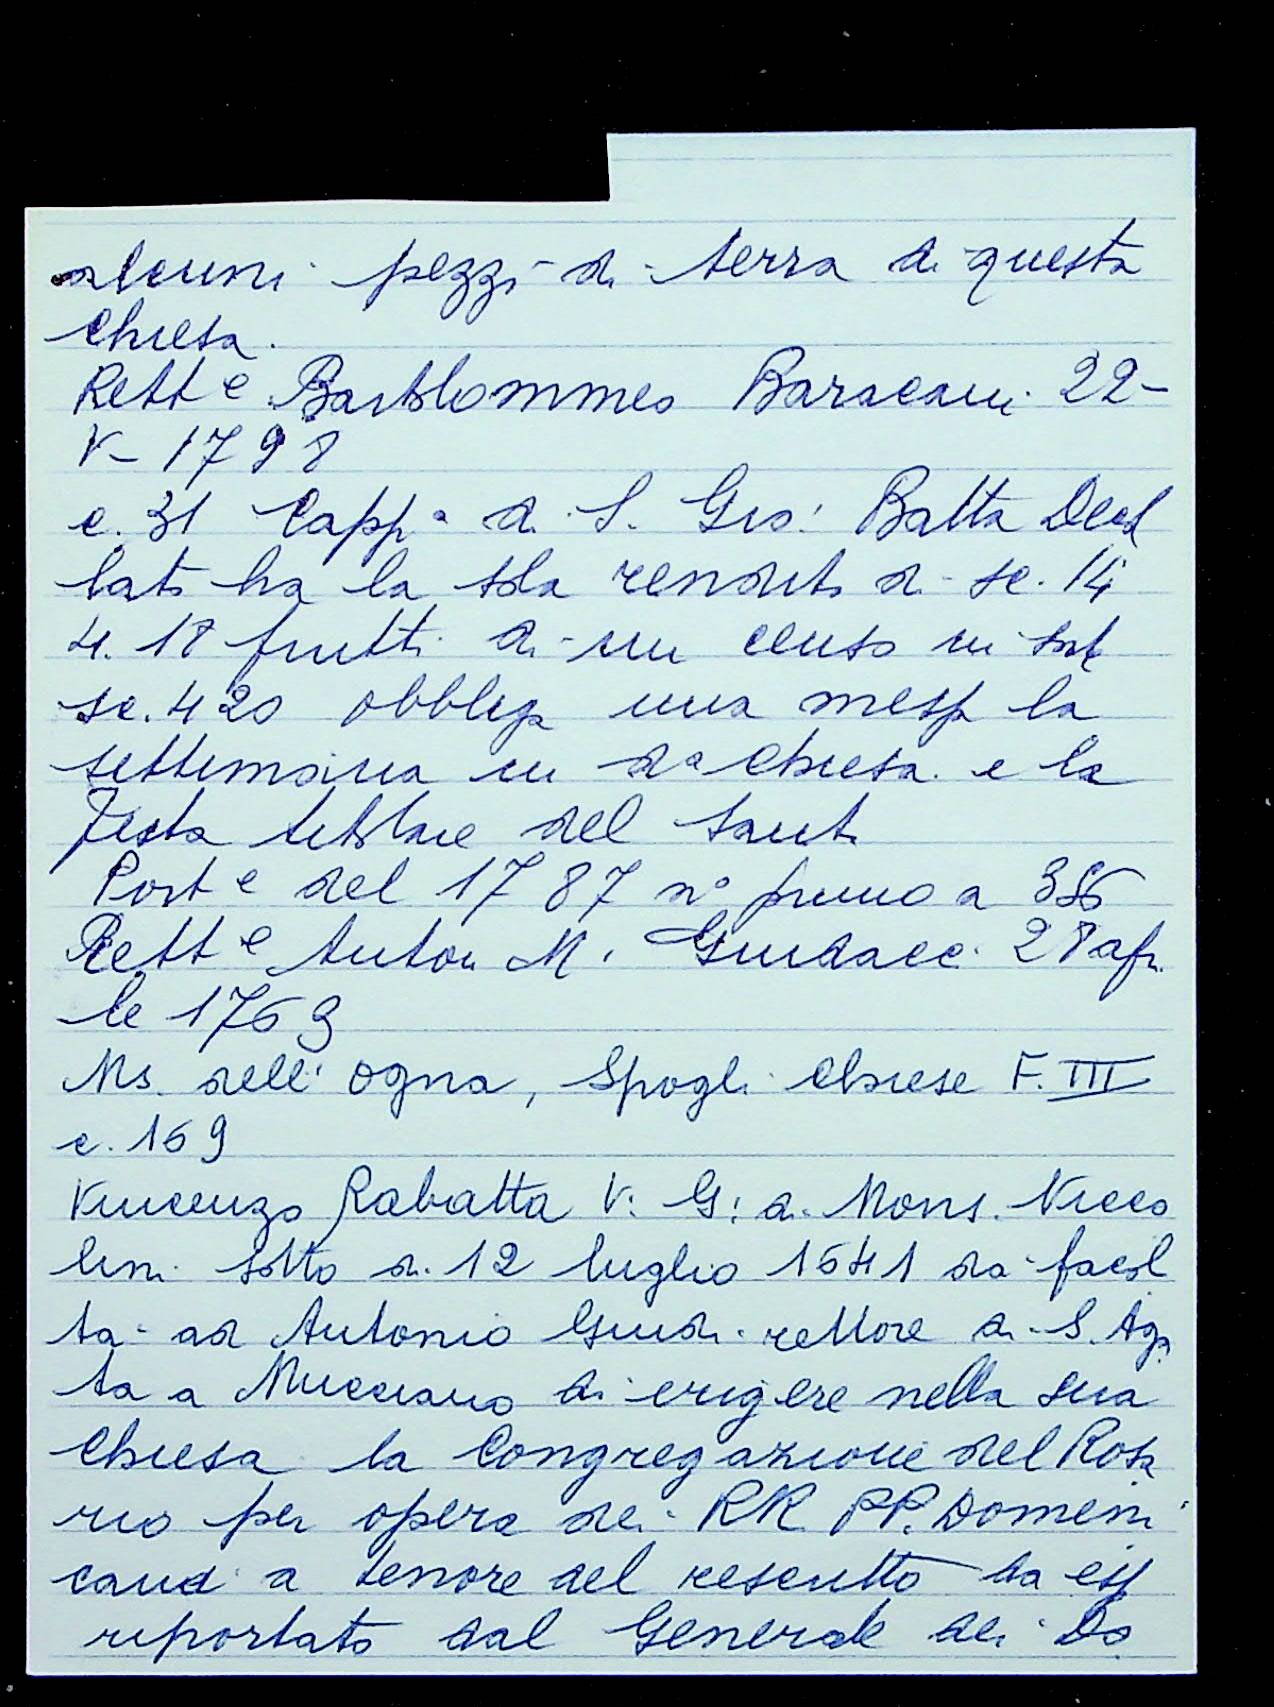 alcuni pezzi di terra di questa
Chiesa.
Rett e Bartolommeo Baracani 22-
V- 1798
c. 31 Capp a di S. Gio: Batta Decol
lato ha la sola rendita di sc. 14
4. 18 frutti di un censo in sorte
sc. 420 obbligo una messa la
settimana in da Chiesa e la
festa titolare del Santo
Port e del 1787 n° primo a 356
Rett e Anton M. Guidacci 28 apri
le 1769
Ms. dell'Ogna, Spogli Chiese F. III
c. 169
Vincenzo Rabatta V. G: di Mons. Nicco
lini sotto di 12 luglio 1641 da facol
ta ad Antonio Guidi rettore di S. Aga
ta a Mucciano di erigere nella sua
Chiesa la Congregazione del Rosa
rio per opera dei RR. PP. Domeni
cani a tenore del rescritto da essi
riportato dal Generale dei Do